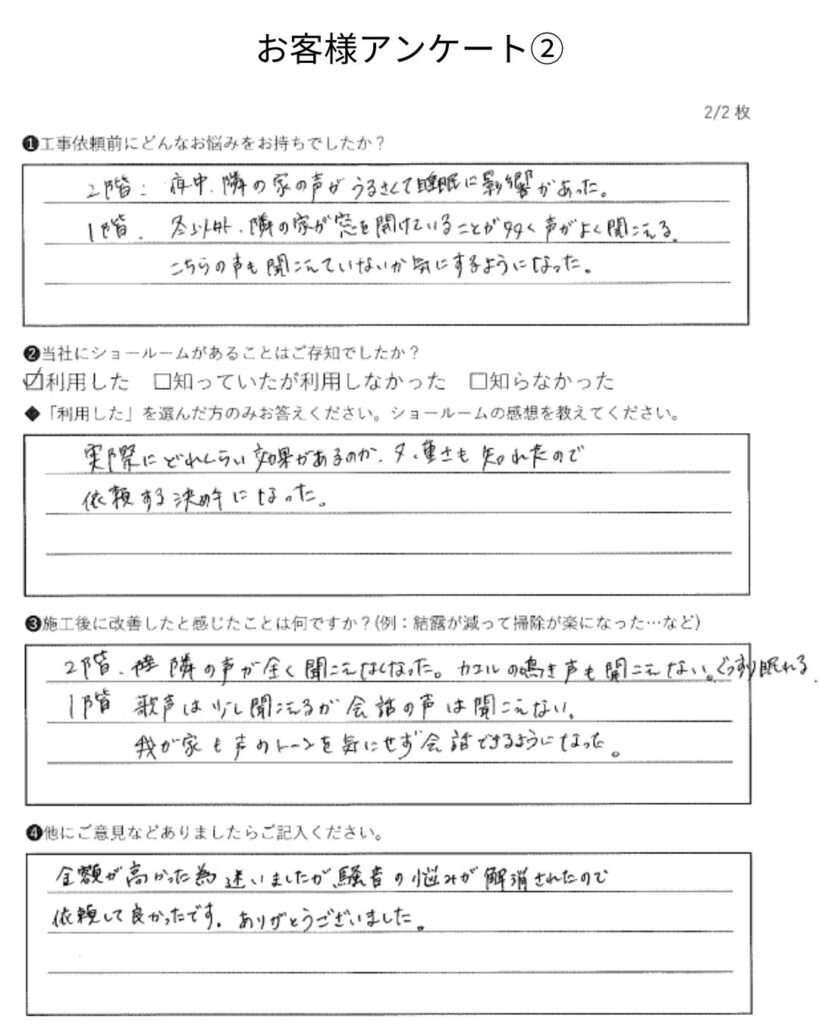 お客様アンケート②
2/2 枚
❶工事依頼前にどんなお悩みをお持ちでしたか？
2階: 夜中、隣の家の声がうるさくて睡眠に影響があった。
1階. 冬以外、隣の家が窓を開けていることが多く声がよく聞こえる。
こちらの声も聞こえていないか気にするようになった。
❷当社にショールームがあることはご存知でしたか？
☑利用した □知っていたが利用しなかった □知らなかった
◆「利用した」を選んだ方のみお答えください。ショールームの感想を教えてください。
実際にどれくらい効果があるのか、重さも知れたので
依頼する決め手になった。
❸施工後に改善したと感じたことは何ですか？(例：結露が減って掃除が楽になった…など)
2階、隣の声が全く聞こえなくなった。カエルの鳴き声も聞こえない。ぐっすり眠れる.
1階 歌声は少し聞こえるが会話の声は聞こえない。
我が家も声のトーンを気にせず会話できるようになった。
❹他にご意見などありましたらご記入ください。
金額が高かった為迷いましたが、騒音の悩みが解消されたので
依頼して良かったです。ありがとうございました。